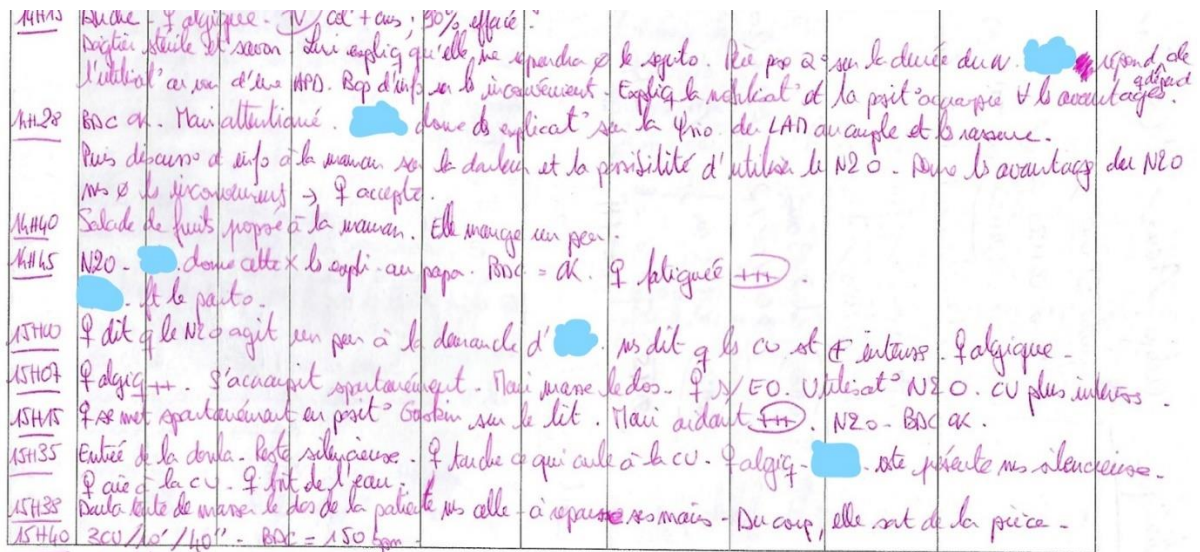 14H15 Douche - ♀ algique. TV / col + ans, 90% effacé.
Doigtier stérile et savon. Lui expliq qu'elle ne reprendra ø le synto. Pose 2 q° sur la durée du W. répond, ola dépend
l'utilisat° au vu d'une APD. Bcp d'info sur ls inconvénient. Expliq la mobilisat° et la posit° accroupie ∀ ls avantages.
14H28 BDC OK. Mari attentionné. donne ds explicat° sur la physio. du LAD au couple et ls rassure.
Puis discussio et info à la maman sur la douleur et la possibilité d'utiliser le N2O. Donne ls avantages du N2O
ms ø ls inconvénients → ♀ accepte.
14H40 Salade de fruits proposé à la maman. Elle mange un peu.
14H45 N2O - donne cette x ls expli. au papa. BDC = OK. ♀ fatiguée +++.
ft le parto.
15H00 ♀ dit q le N2O agit un peu à la demande d' ms dit q ls CU st intense. ♀ algique -
15H07 ♀ algiq ++. S'accroupit spontanément. Mari masse le dos. ♀ s/ EO. Utilisat° N2O. CU plus intenses.
15H15 ♀ se met spontanément en posit° Gaskin sur le lit. Mari aidant +++. N2O - BDC OK.
15H35 Entrée de la doula. Reste silencieuse. ♀ touche ce qui coule à la CU. ♀ algiq - reste présente ms silencieuse.
♀ crie à la CU. ♀ boit de l'eau.
15H38 Doula tente de masser le dos de la patiente ms celle - ci repousse ses mains - Du coup, elle sort de la pièce -
15H40 3CU/10'/40'' - BDC = 150 bpm -